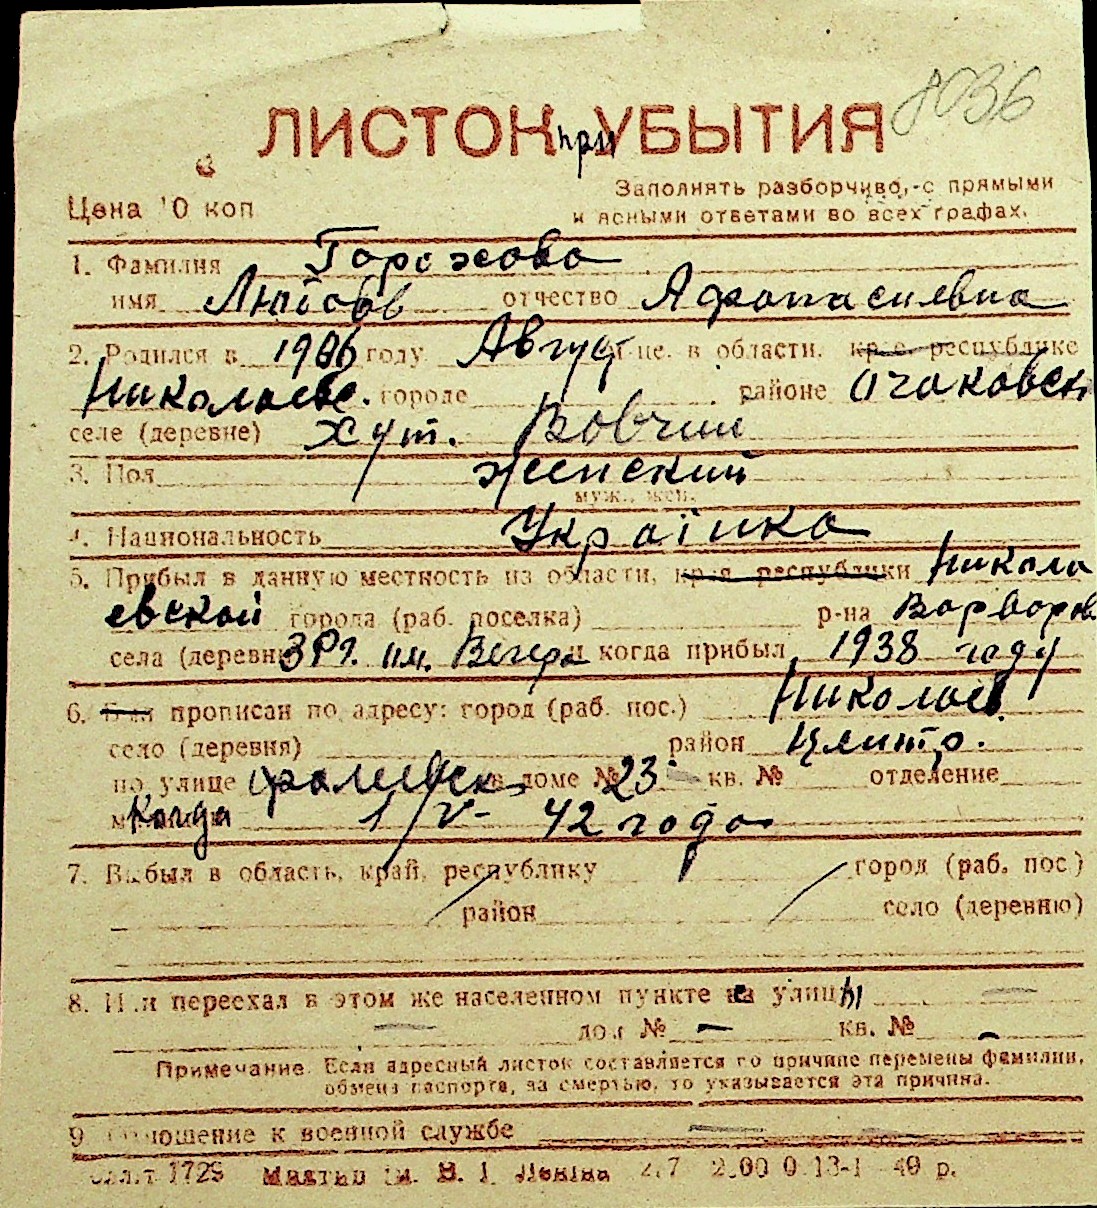 8036
ЛИСТОК при УБЫТИЯ
Цена 10 коп
Заполнять разборчиво, с прямыми
и ясными ответами во всех графах.
1. Фамилия Горожова
имя Любовь отчество Афанасиевна
2. Родился в 1906 году Август м-це. в области, кр-е, республике
Николаевс. городе районе Очаковск
селе (деревне) Хут. Вовчий
3. Пол женский
муж., жен.
4. Национальность Українка
5. Прибыл в данную местность из области, края, республики Никола
евской города (раб. поселка) р-на Варваров.
села (деревни им. и когда прибыл 1938 году
6. Был прописан по адресу: город (раб. пос.) Николаев.
село (деревня) район Центр.
по улице в доме № 23 кв. № отделение
Когда 1/V- 42 года
7. Выбыл в область, край, республику город (раб. пос.)
район село (деревню)
8. Или переехал в этом же населенном пункте на улицы
дом № – кв. № –
Примечание. Если адресный листок составляется по причине перемены фамилии,
обмена паспорта, за смертью, то указывается эта причина.
9. Отношение к военной службе
1729 В. І. Леніна 40 р.